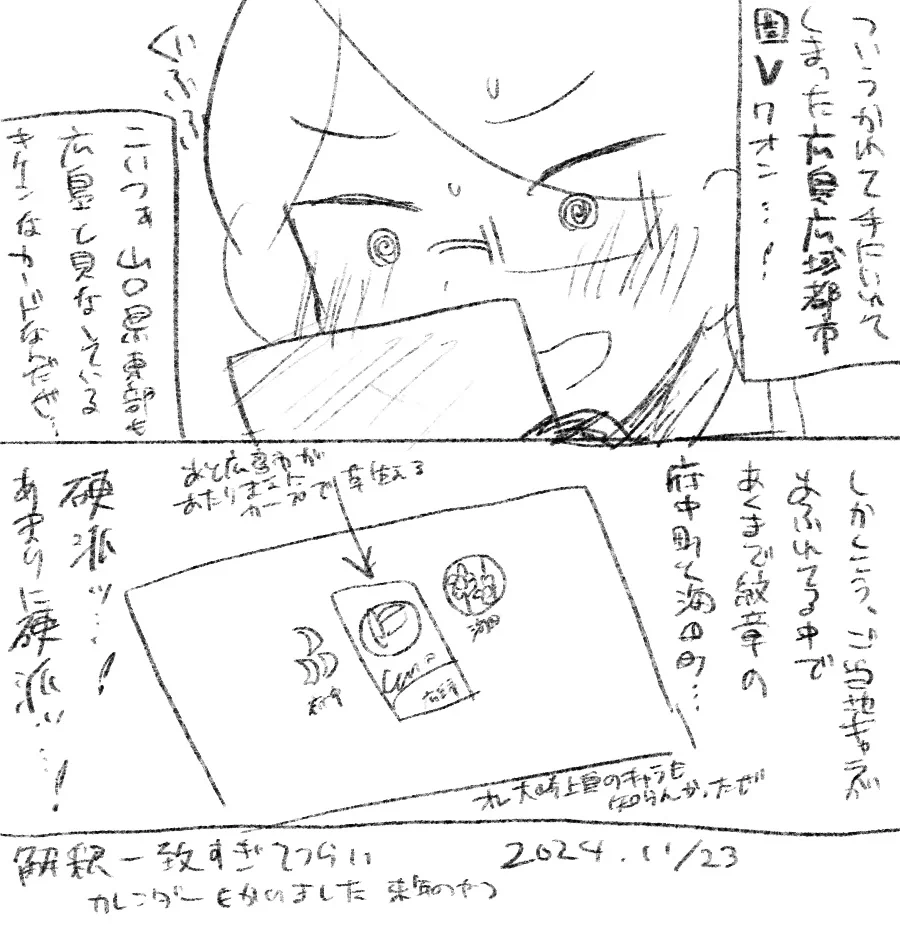 ついうかれて手にいれて
しまった広島広域都市
圏Vクオン…!
ぐふふふ
こいつぁ山口県東部も
広島と見なしている
キケンなカードなんだぜ…
しかしこう、ご当地キャラが
あふれてる中で
あくまで紋章の
府中町と海田町…
あと広島市が
あたりまえに
カープで草生える
海田
府中
広島市
硬派ッ…!
あまりに硬派ッ…!
オレ大崎上島のキャラも
知らんかったぜ
解釈一致すぎてつらい
2024.11/23
カレンダーもかいました 来年のやつ